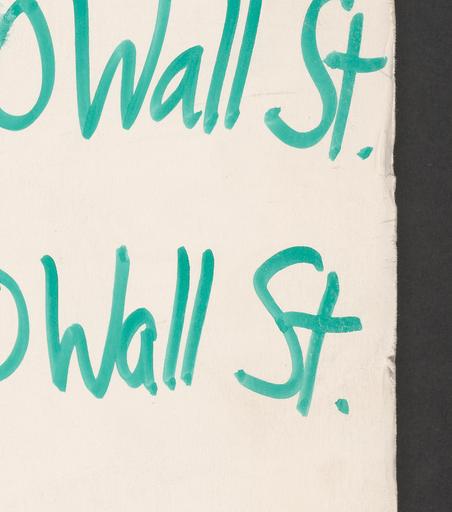 0 Wall St.
0 Wall St.